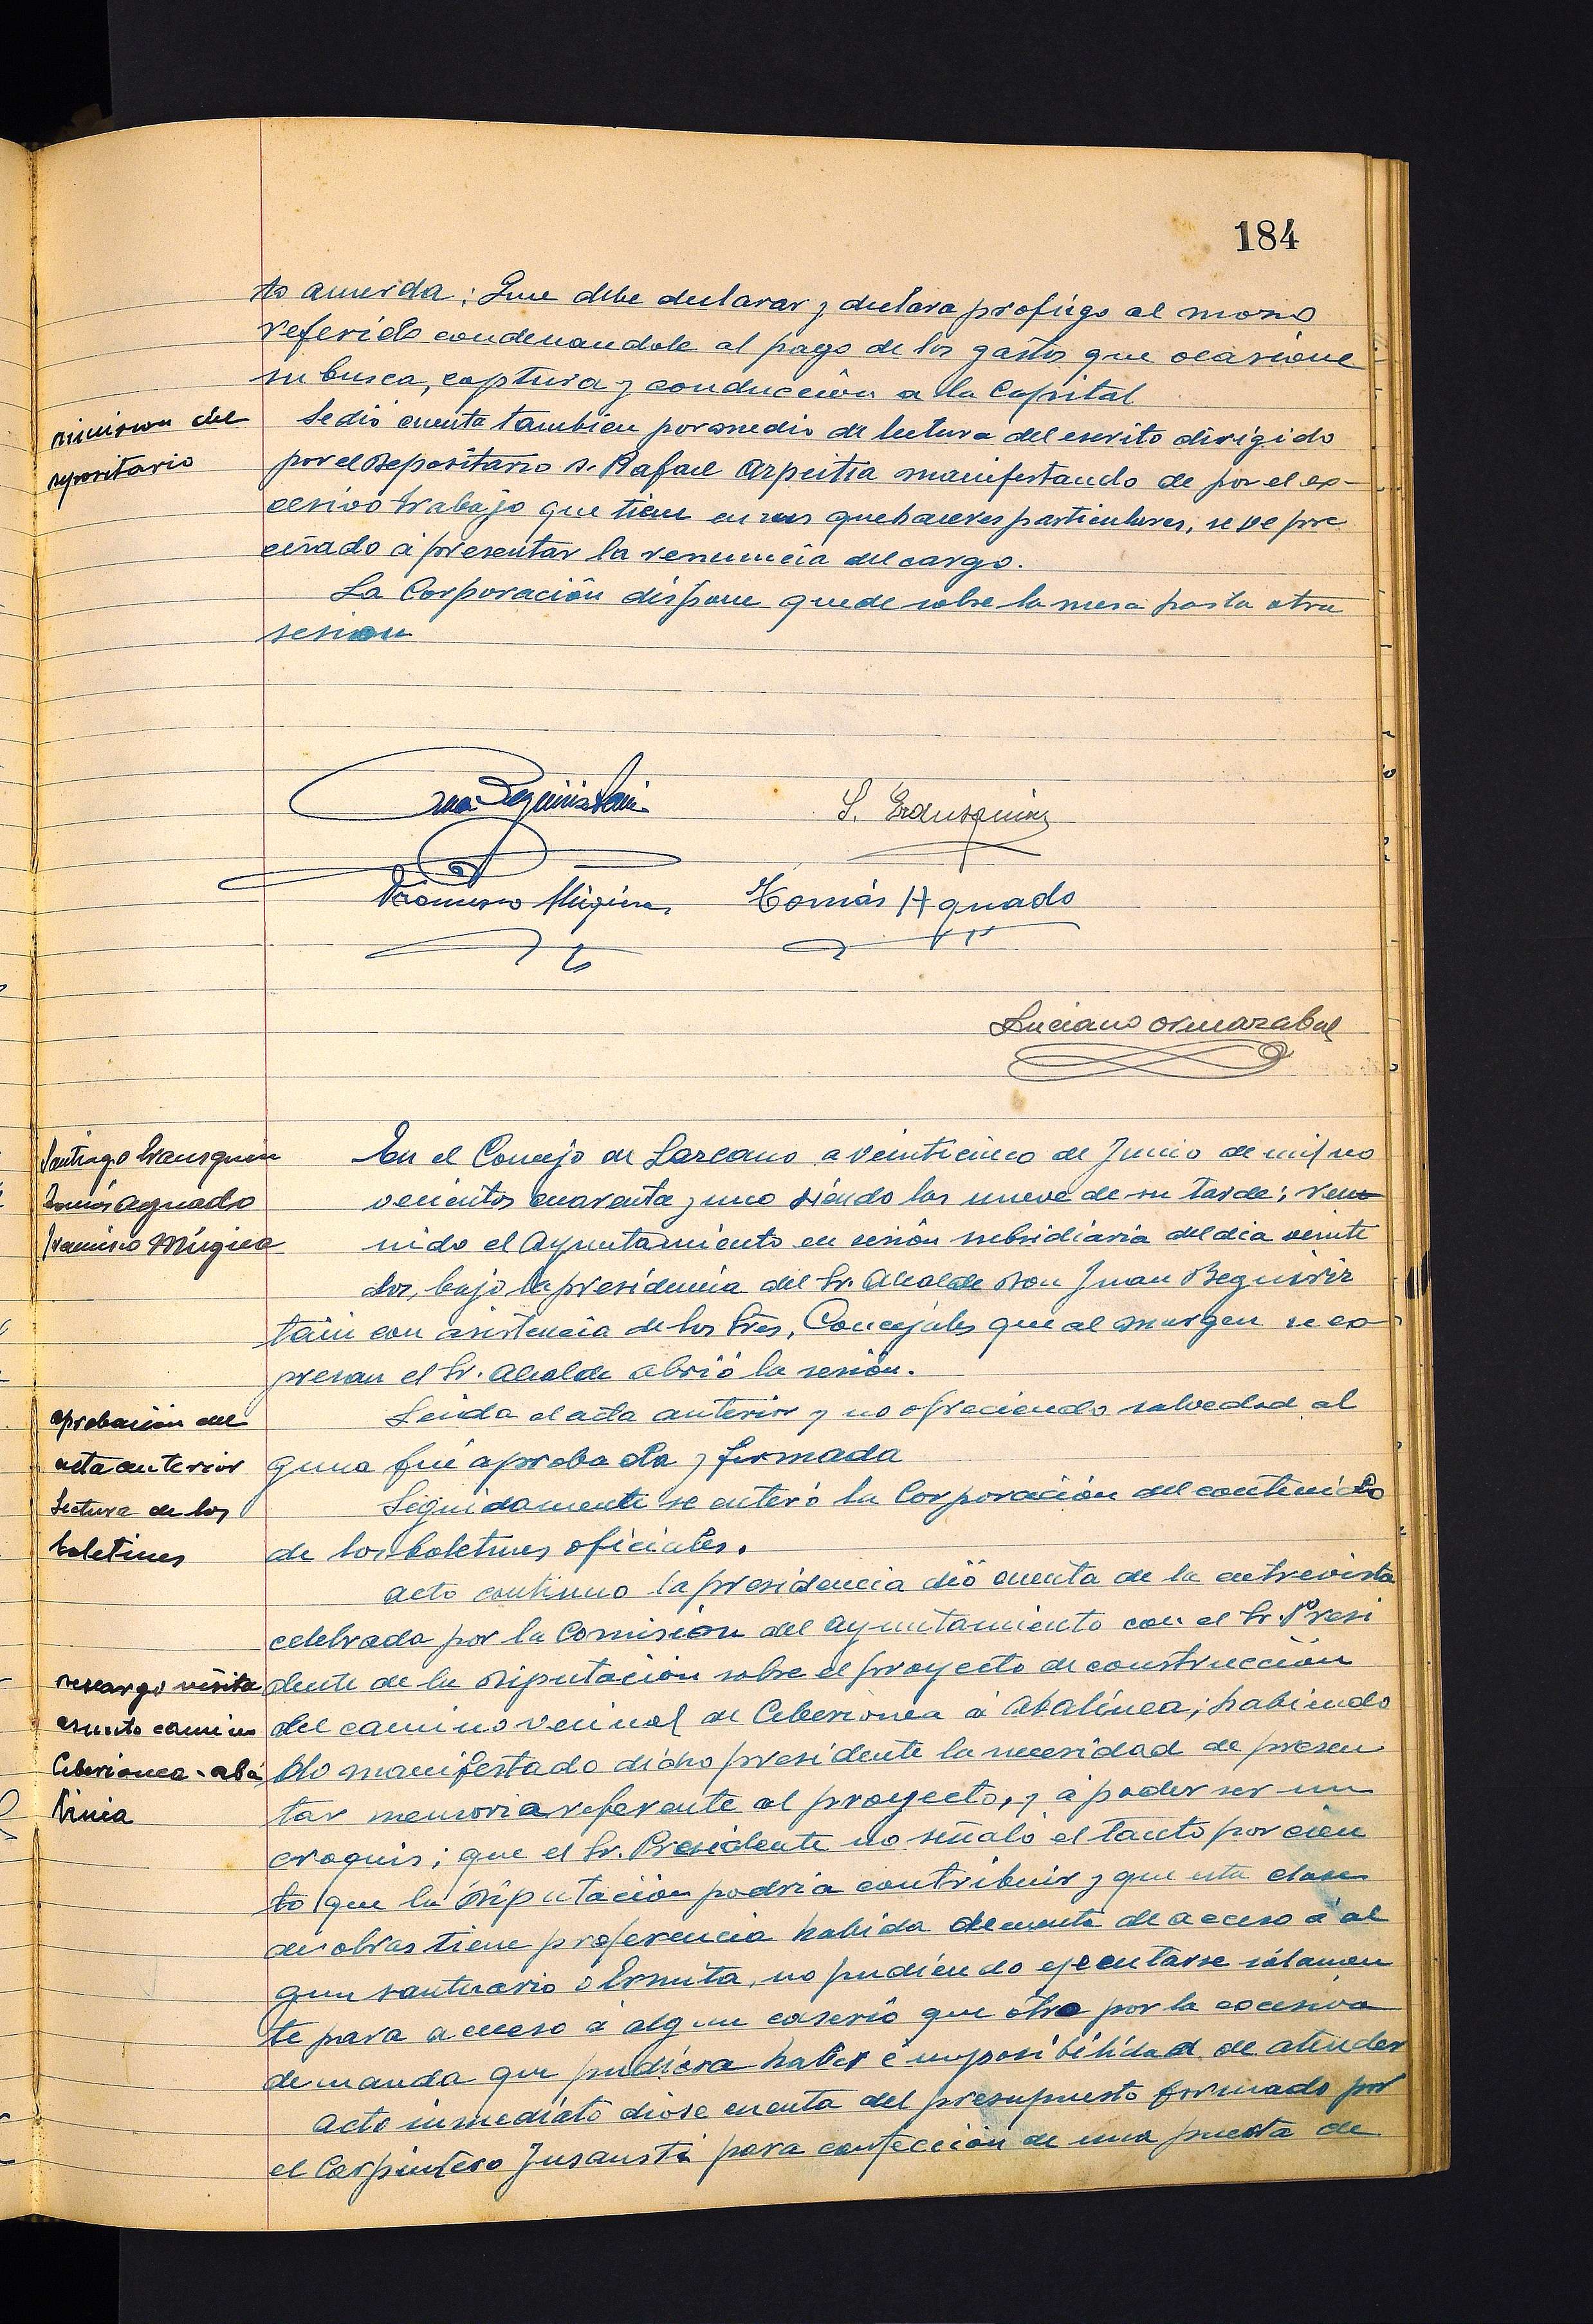 184
to acuerda: Que debe declarar y declara profugo al mozo
referido condenandole al pago de los gastos que ocasione
su busca, captura y conducción a la Capital
mision del
Se dió cuenta tambien por medio de lectura del escrito dirigido
positario
por el Depositario D. Rafael Azpeitia manifestando de por el ex-
cesivo trabajo que tiene en sus quehaceres particulares, se ve pre
cisado á presentar la renuncia del cargo.
La Corporación dispone quede sobre la mesa hasta otra
sesion
Juan Beguiristain
S. Irausquin
Francisco Múgica
Tomás Aguado
Luciano Ormazabal
Santiago Irausquin
En el Concejo de Lazcano a veinticinco de Junio de mil no
Tomás Aguado
vecientos cuarenta y uno siendo las nueve de su tarde; reu
Francisco Múgica
nido el Ayuntamiento en sesión subsidiaria del dia veinte
dos, bajo la presidencia del Sr. Alcalde Don Juan Beguiriz
tain con asistencia de los Sres. Concejales que al margen se ex
presan el Sr. Alcalde abrió la sesión.
aprobación del
Leida el acta anterior y no ofreciendo salvedad al
acta anterior
guna fué aprobada y firmada
Lectura de los
Seguidamente se enteró la Corporación del contenido
boletines
de los boletines oficiales.
Acto continuo la presidencia dió cuenta de la entrevista
celebrada por la Comisión del Ayuntamiento con el Sr. Presi
descargo visita
dente de la Diputación sobre el proyecto de construcción
asunto camino
del camino vecinal de Ceberionea á Abalinea; habiendo
Ceberionea-aba
do manifestado dicho presidente la necesidad de presen
linia
tar memoria referente al proyecto, y á poder ser un
croquis; que el Sr. Presidente no señaló el tanto por cien
to que la Diputación podria contribuir y que esta clase
de obras tiene preferencia habida de cuenta de acceso á al
gun santuario o Ermita, no pudiendo ejecutarse sólamen
te para acceso á algun caserio que otro por la excesiva
demanda que pudiera haber é imposibilidad de atender
Acto inmediato diose cuenta del presupuesto formado por
el Carpintero Insausti para confección de una puerta de